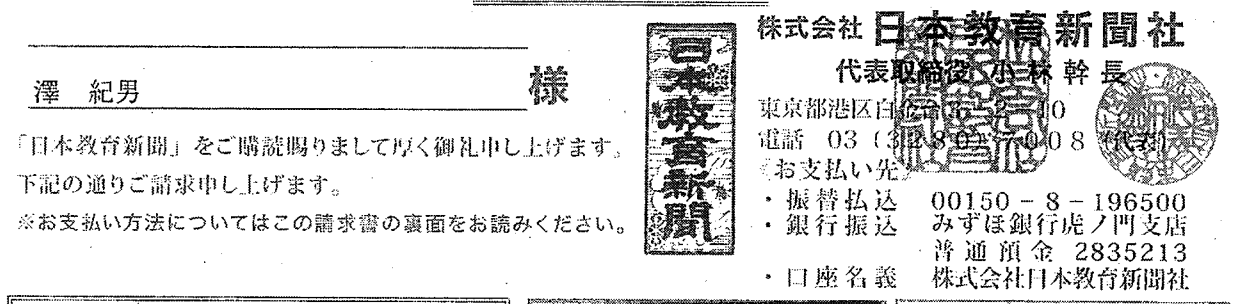 澤 紀男 様
「日本教育新聞」をご購読賜りまして厚く御礼申し上げます。
下記の通りご請求申し上げます。
※お支払い方法についてはこの請求書の裏面をお読みください。
日本教育新聞
株式会社 日本教育新聞社
代表取締役 小林幹長
東京都港区白金台
電話 03(3280)7008(代表)
《お支払い先》
・振替払込 00150-8-196500
・銀行振込 みずほ銀行虎ノ門支店
普通預金 2835213
・口座名義 株式会社日本教育新聞社